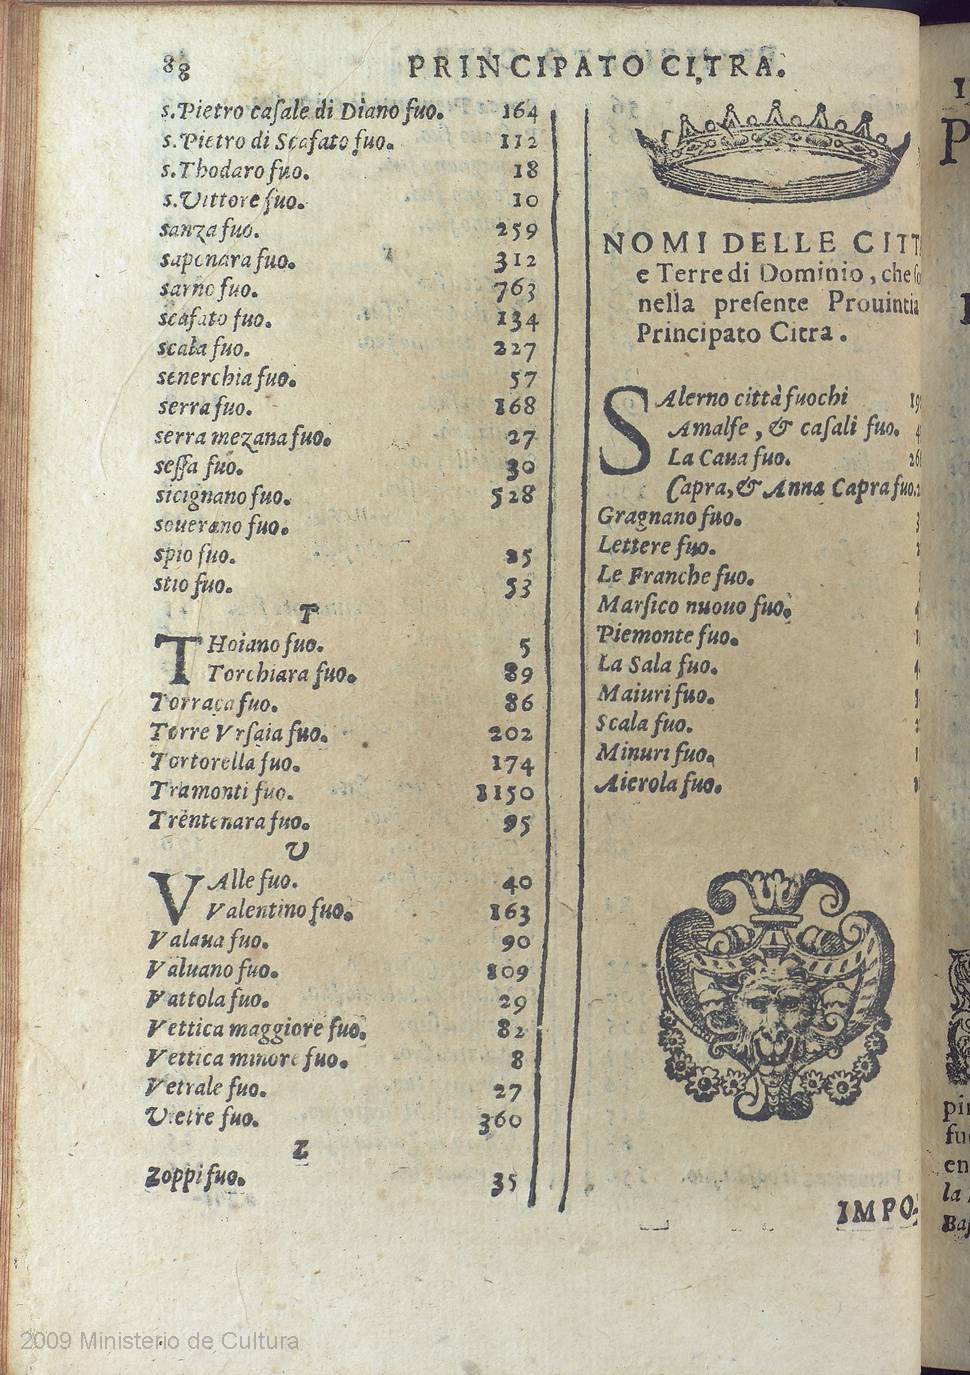 88 PRINCIPATO CITRA.
s.Pietro caſale di Diano fuo. 164
s.Pietro di Scafato fuo. 112
s.Thodaro fuo. 18
s.Vittore fuo. 10
sanza fuo. 259
saponara fuo. 312
sarno fuo. 763
scafato fuo. 134
scala fuo. 227
senerchia fuo. 57
serra fuo. 168
serra mezana fuo. 27
seſſa fuo. 30
sicignano fuo. 528
souerano fuo.
spio fuo. 85
stio fuo. 53
T
THoiano fuo. 5
Torchiara fuo. 89
Torraca fuo. 86
Torre Vrſaia fuo. 202
Tortorella fuo. 174
Tramonti fuo. 1150
Trentenara fuo. 95
V
VAlle fuo. 40
Valentino fuo. 163
Valaua fuo. 90
Valuano fuo. 109
Vattola fuo. 29
Vettica maggiore fuo. 82
Vettica minore fuo. 8
Vetrale fuo. 27
Vietre fuo. 360
Z
Zoppi fuo. 35
NOMI DELLE CITT
e Terre di Dominio, che ſo
nella preſente Prouincia
Principato Citra.
SAlerno città fuochi
Amalfe, & caſali fuo.
La Caua fuo.
Capra, & Anna Capra fuo.
Gragnano fuo.
Lettere fuo.
Le Franche fuo.
Marſico nuouo fuo.
Piemonte fuo.
La Sala fuo.
Maiuri fuo.
Scala fuo.
Minuri fuo.
Aierola fuo.
IMPO-
pi
fu
en
la
Baſ
2009 Ministerio de Cultura